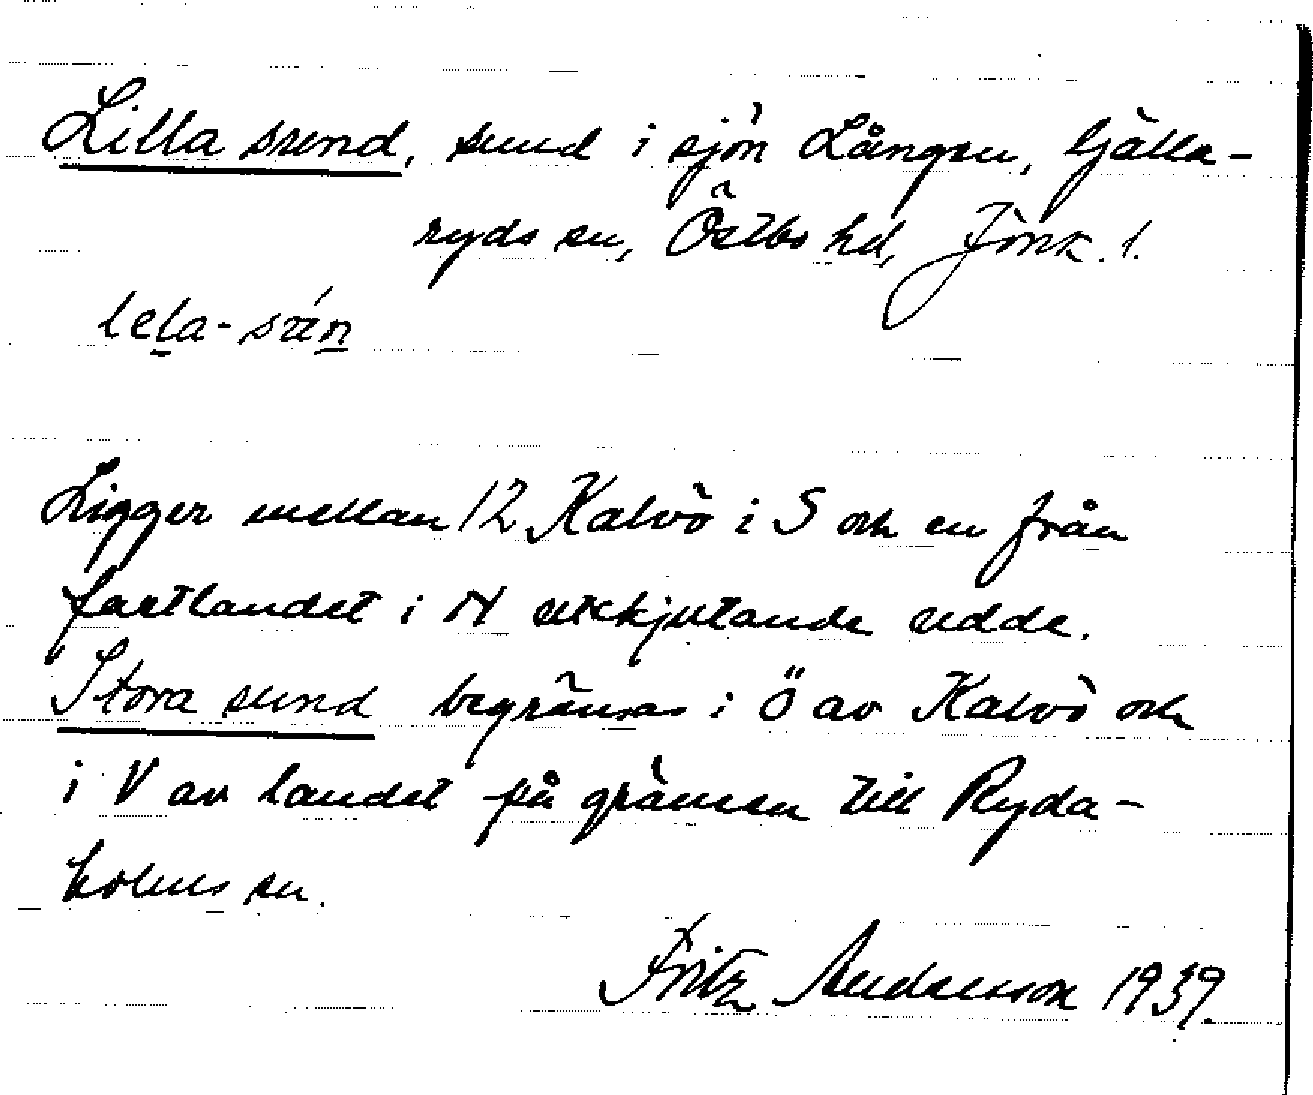 Lilla sund, sund i sjön Lången, Gälla-
ryds sn, Östbo hd, Jönk. l.
lela-sún
Ligger mellan 12 Kalvö i S och en från
fastlandet i N utskjutande udde.
Stora sund begränsas i Ö av Kalvö och
i V av landet på gränsen till Ryda-
holms sn.
Fritz Anderson 1939.